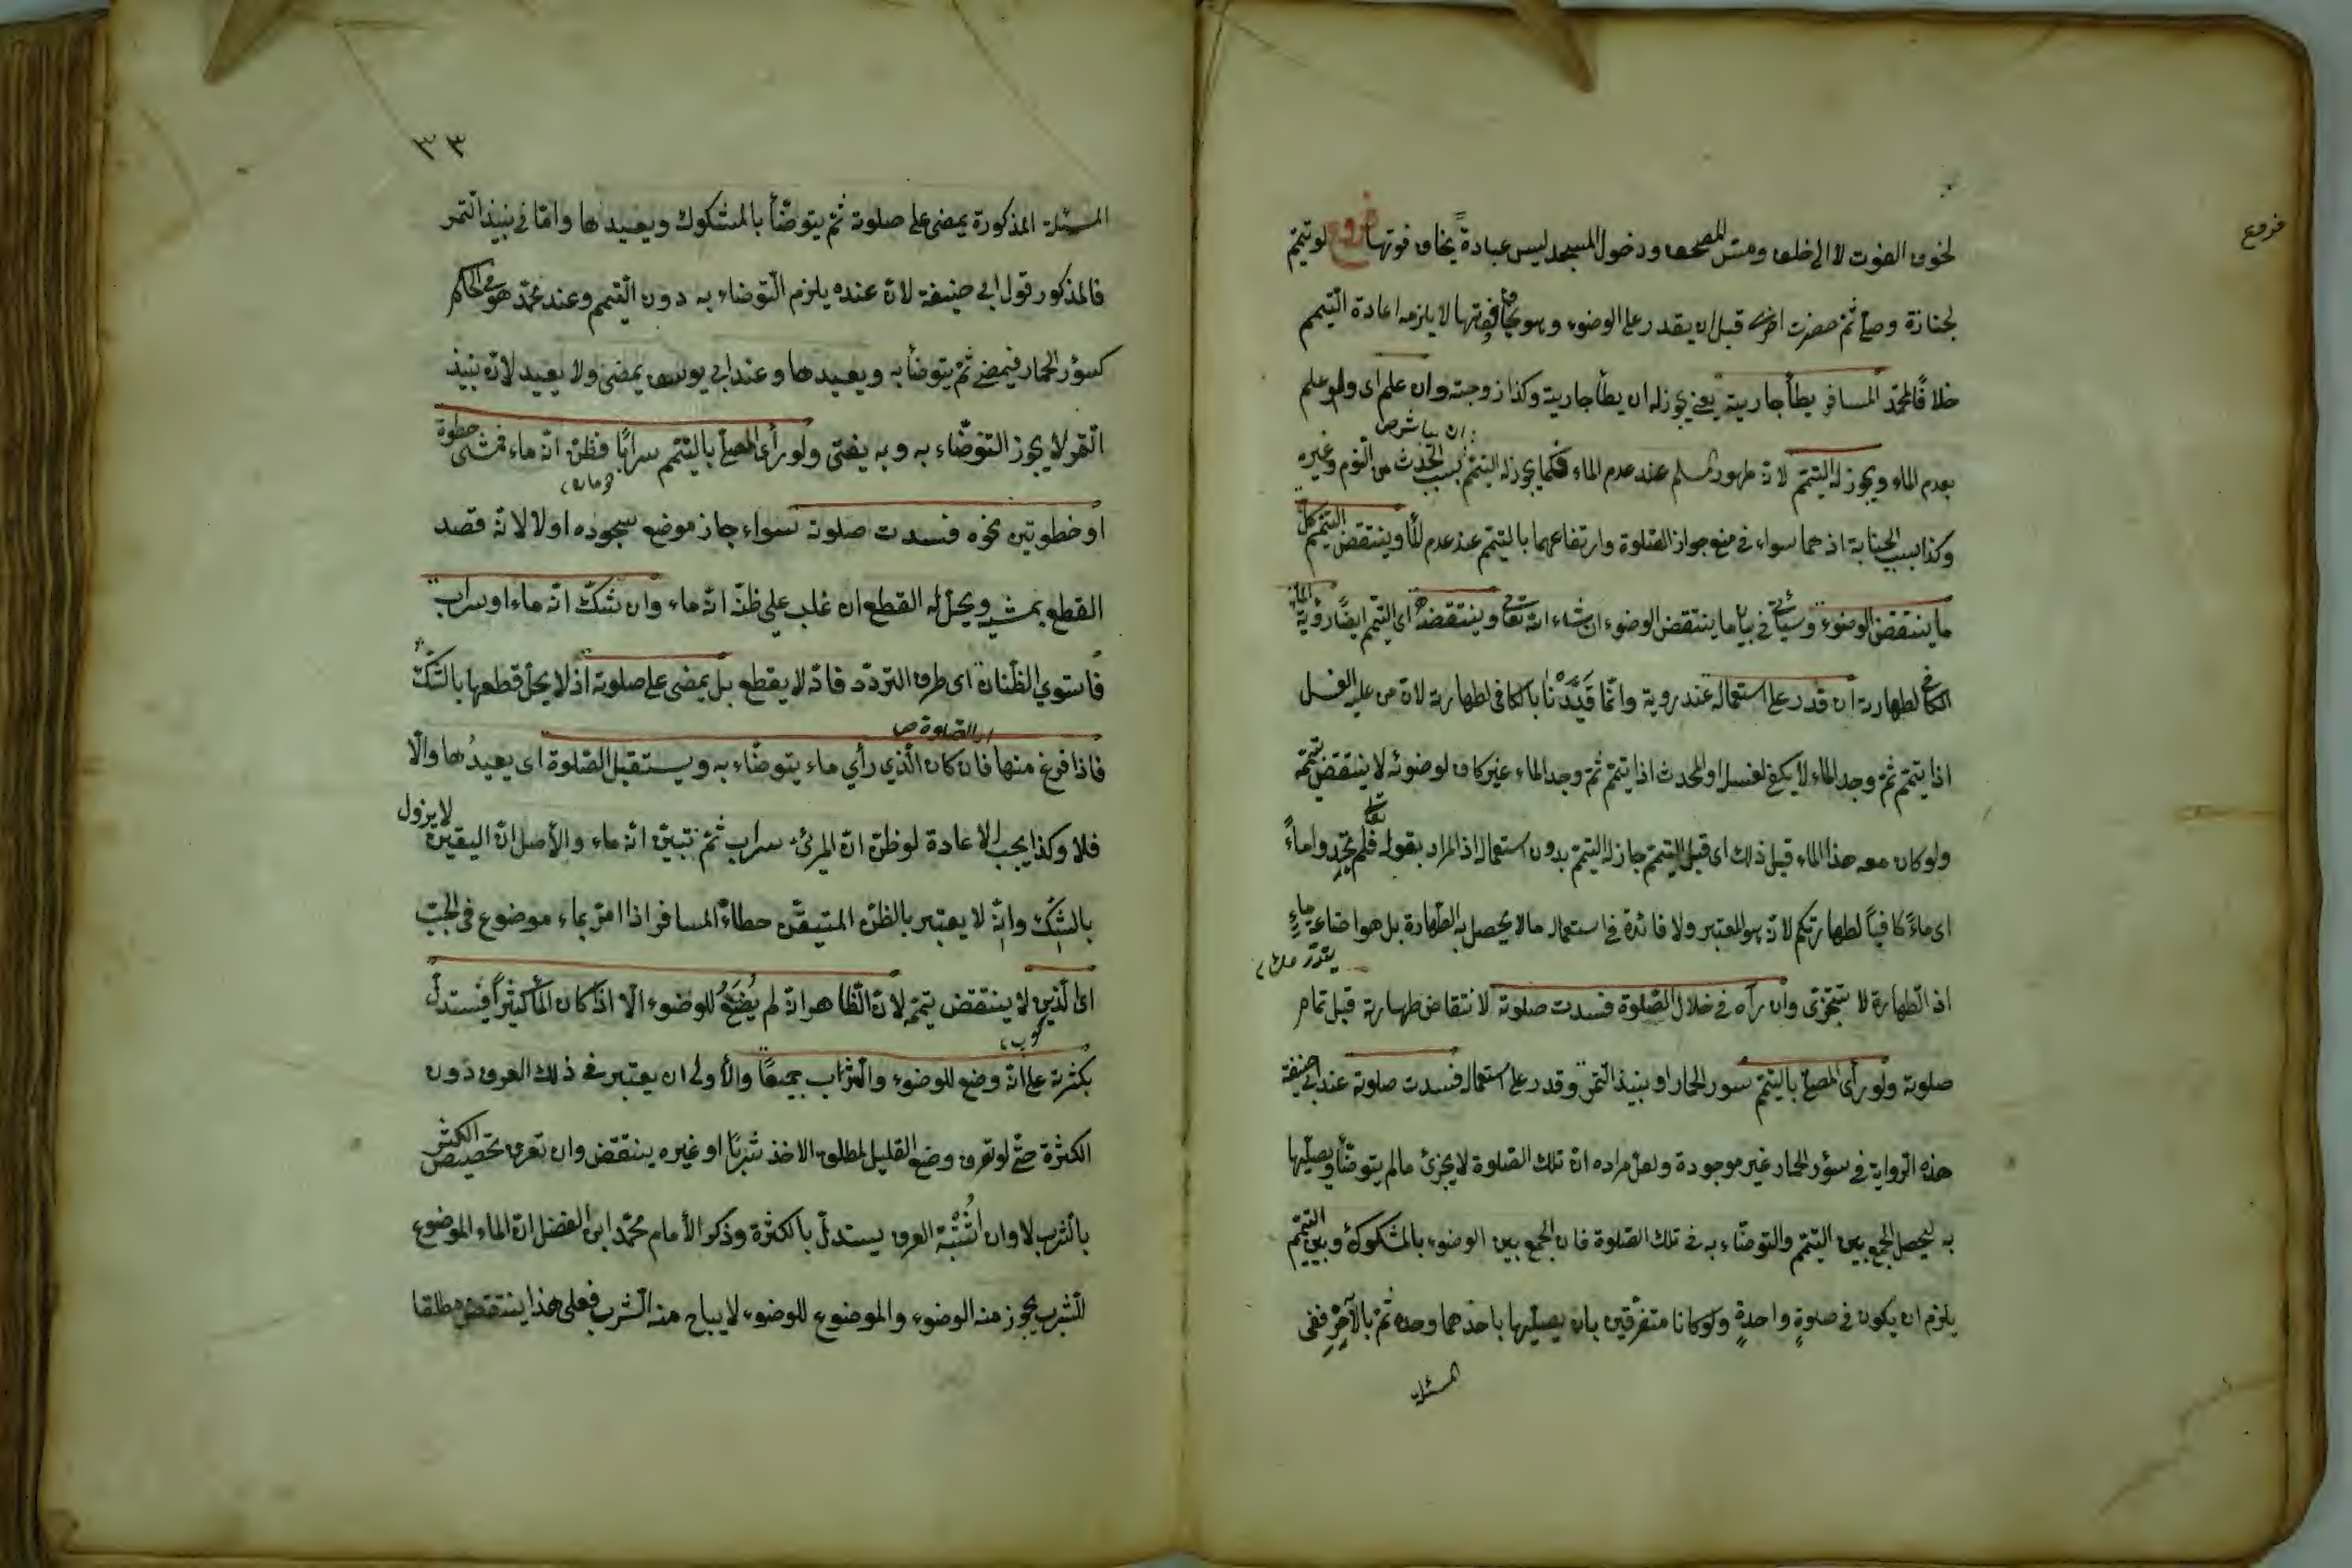 فروع
لخوف الفوت لا الى خلف ومس المصحف ودخول المسجد ليس عبادة يخاف فوتها فروع لو تيمم
لجنازة وصلى ثم حضرت اخرى قبل ان يقدر على الوضوء وهو يخاف فوتها لا يلزمه اعادة التيمم
خلافا لمحمد المسافر يطأ جاريته يعنى يجوز له ان يطأ جاريته وكذا زوجته وان علم اى ولو علم
بعدم الماء ويجوز له التيمم لانه طهور المسلم عند عدم الماء فكما يجوز له التيمم بسبب الحدث من النوم وغيره
وكذا بسبب الجنابة اذ هما سواء فى منع جواز الصلوة وارتفاعهما بالتيمم عند عدم الماء وينتقض التيمم كل
ما ينتقض الوضوء وسيأتى فى بيان ما ينتقض الوضوء ان شاء الله تعالى وينتقضه اى التيمم ايضا رؤية الماء
الكافى لطهارته ان قدر على استعماله عند رويته وانما قَيَّدْنا بالكافى لطهارته لان من عليه الغسل
اذا تيمم ثم وجد الماء لا يكفى لغسله او المحدث اذا تيمم ثم وجد الماء غير كاف لوضوئه لا ينتقض تيممه
ولو كان معه هذا الماء قبل ذلك اى قبل التيمم جاز له التيمم بدون استعماله اذ المراد بقوله تعالى فلم تجدوا ماءً
اى ماءً كافياً لطهارتكم لانه هو المعتبر ولا فائدة فى استعمال مالا يحصل به الطهارة بل هو اضاعة ماءٍ
اذ الطهارة لا تتجزى وان رآه فى خلال الصلوة فسدت صلوته لانتقاض طهارته قبل تمام
صلوته ولو رأى المصلى بالتيمم سور الحمار او نبيذ التمر وقدر على استعماله فسدت صلوته عند ابى حنيفة
هذه الرواية فى سؤر الحمار غير موجودة ولعل مراده ان تلك الصلوة لا يجزئ مالم يتوضأ ويصليها
به ليحصل الجمع بين التيمم والتوضاء به فى تلك الصلوة فان الجمع بين الوضوء بالمشكوك وبين التيمم
يلزم ان يكون فى صلوةٍ واحدةٍ ولو كانا متفرقين بان يصليها باحدهما وحده ثم بالآخر ففى
المسئلة
٣٣
المسئلة المذكورة يمضى على صلوته ثم يتوضأ بالمشكوك ويعيدها واما فى نبيذ التمر
فالمذكور قول ابى حنيفة لان عنده يلزم التوضاء به دون التيمم وعند محمد هو فى الحكم
كسؤر الحمار فيمضى ثم يتوضأ به ويعيدها وعند ابى يوسف يمضى ولا يعيد لانه نبيذ
التمر لا يجوز التوضاء به وبه يفتى ولو رأى المصلى بالتيمم سرابًا فظن انه ماء فمشى خطوة
او خطوتين نحوه فسدت صلوته سواء جاز موضع سجوده اولا لانه قصد
القطع بمشيه ويحل له القطع ان غلب على ظنه انه ماء وان شك انه ماء او سراب
فاستوى الظنان اى طرف التردد فانه لا يقطع بل يمضى على صلوته اذ لا يحل قطعها بالشك
فاذا فرغ منها فان كان الذي رأي ماء يتوضاء به ويستقبل الصلوة اى يعيدها والا
فلا وكذا يجب الاعادة لو ظن ان المرئى سراب ثم تبين انه ماء والأصل ان اليقين لا يزول
بالشك وانه لا يعتبر بالظن المتيقن خطاءه المسافر اذا مر بماء موضوع فى الجب
اى الدن لا ينتقض تيممه لان الظاهر انه لم يُضَعْ للوضوء الا اذا كان الماء كثيراً فيستدل
بكثرته على انه وضع للوضوء والشراب جميعًا والأولى ان يعتبر فى ذلك العرف دون
الكثرة حتى لو تعرف وضع القليل لمطلق الاخذ شربًا او غيره ينتقض وان تعرف تخصيص الكثير
بالشرب لا وان اشتبه العرف يستدل بالكثرة وذكر الأمام محمد ابن الفضل ان الماء الموضوع
للشرب يجوز منه الوضوء والموضوع للوضوء لا يباح منه الشرب فعلى هذا ينتقض مطلقا